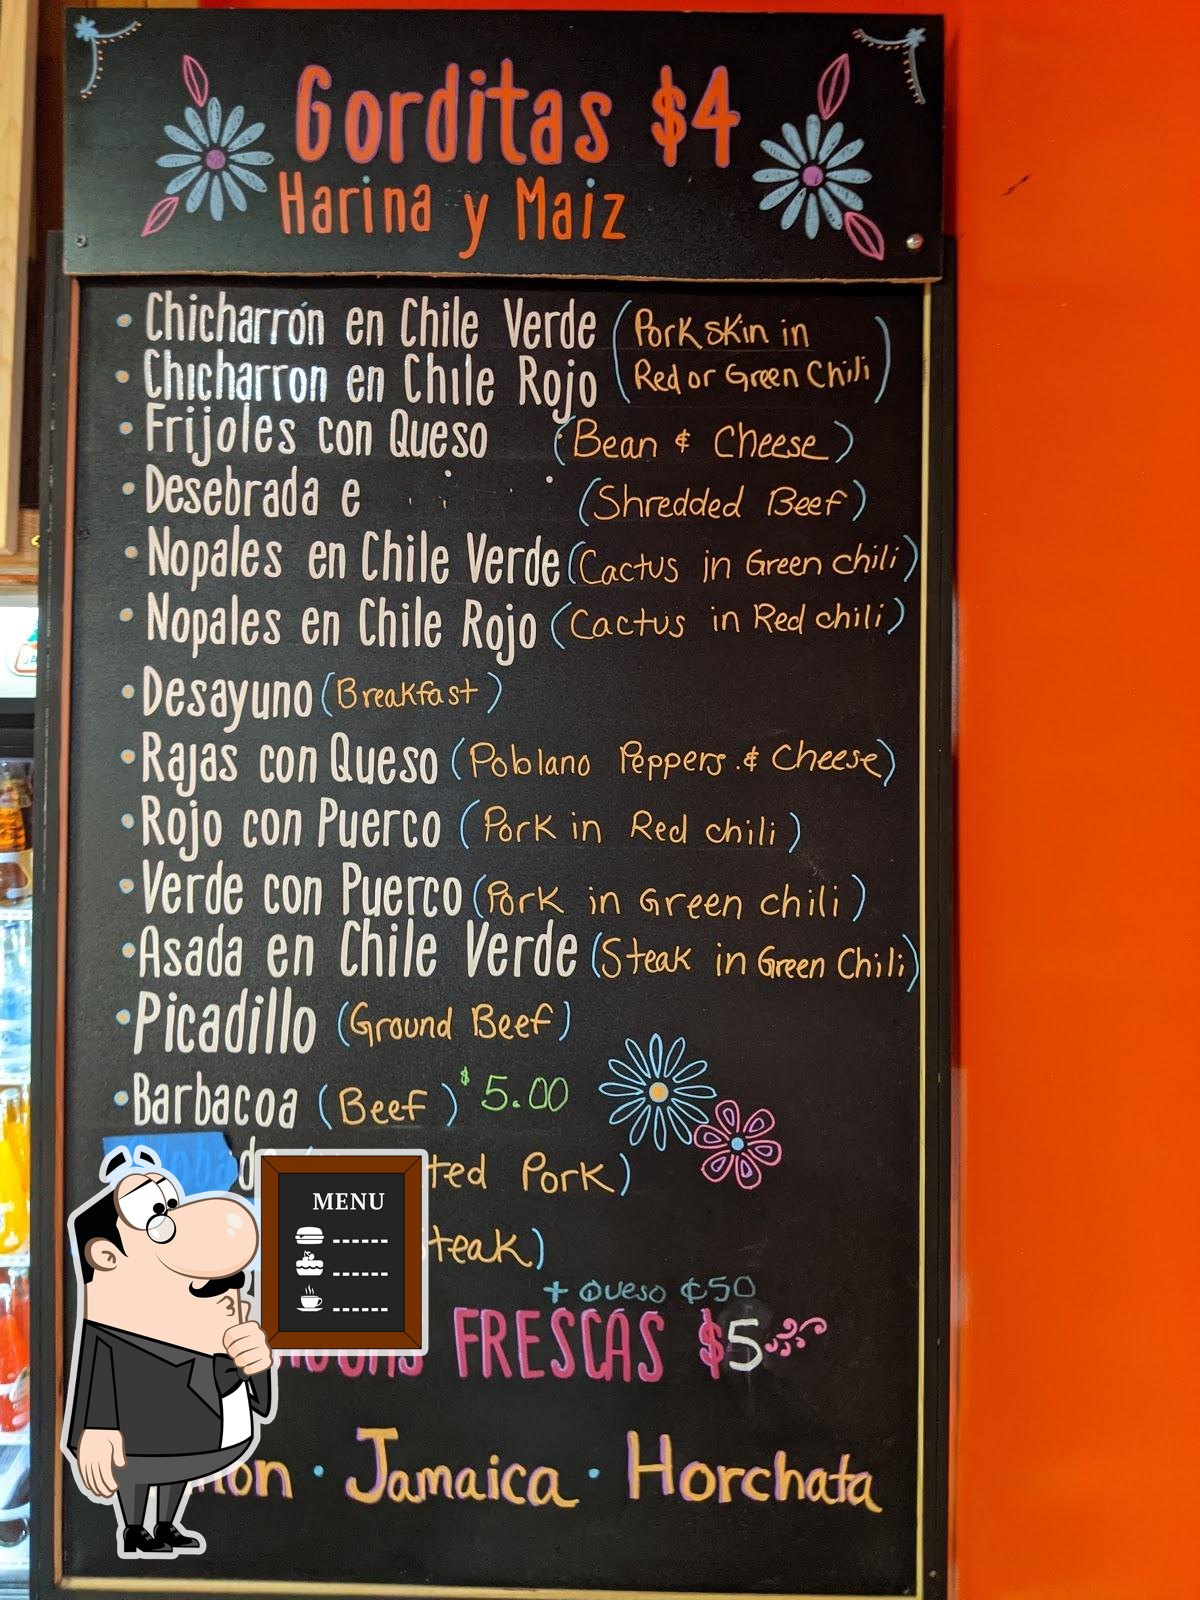 Gorditas $4
Harina y Maiz
• Chicharrón en Chile Verde (Pork skin in
• Chicharron en Chile Rojo Red or Green Chili)
• Frijoles con Queso (Bean & Cheese)
• Desebrada e (Shredded Beef)
• Nopales en Chile Verde (Cactus in Green chili)
• Nopales en Chile Rojo (Cactus in Red chili)
• Desayuno (Breakfast)
• Rajas con Queso (Poblano Peppers & Cheese)
• Rojo con Puerco (Pork in Red chili)
• Verde con Puerco (Pork in Green chili)
• Asada en Chile Verde (Steak in Green Chili)
• Picadillo (Ground Beef)
• Barbacoa (Beef) $5.00
Pork)
MENU
+ Queso ¢50
FRESCAS $5
• Jamaica • Horchata